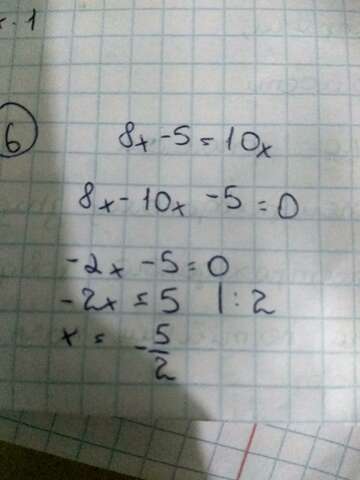 . 1
6
8x - 5 = 10x
8x - 10x - 5 = 0
-2x - 5 = 0
-2x = 5 | : 2
x = - 5/2